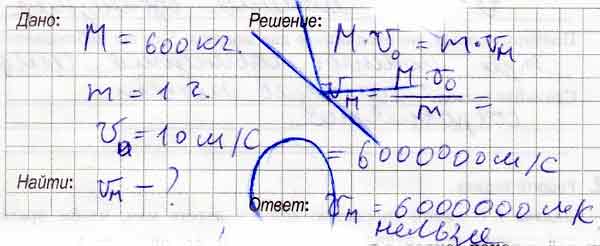 Дано:
M = 600 кг.
m = 1 г.
v₀ = 10 м/с
Найти:
vм – ?
Решение:
M · v₀ = m · vм
vм = M · v₀ / m =
= 6000000 м/с
Ответ: vм = 6000000 м/с
нельзя